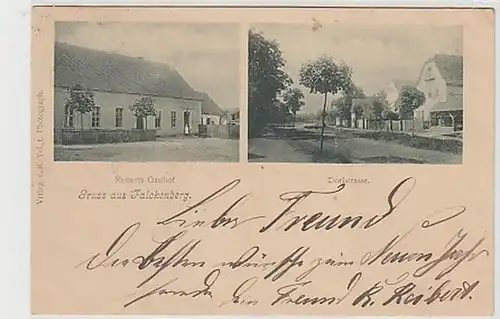 Verlag v. K. Voigt Photograph.
Reiberts Gasthof
Dorfstrasse.
Gruss aus Falckenberg.
Lieber Freund
Die besten wünsche zum Neuen Jahr
sendet dein Freund K. Reibert.